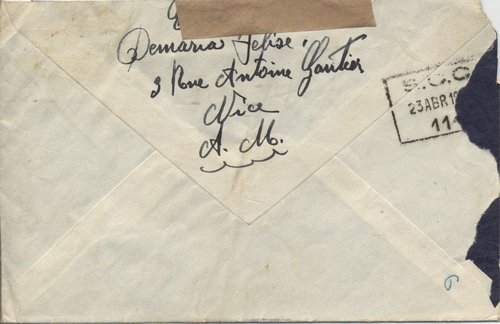 Demaria Felise,
3 Rue Antoine Gautier
Nice
A. M.
S.C.C.
23 ABR. 19
111
6